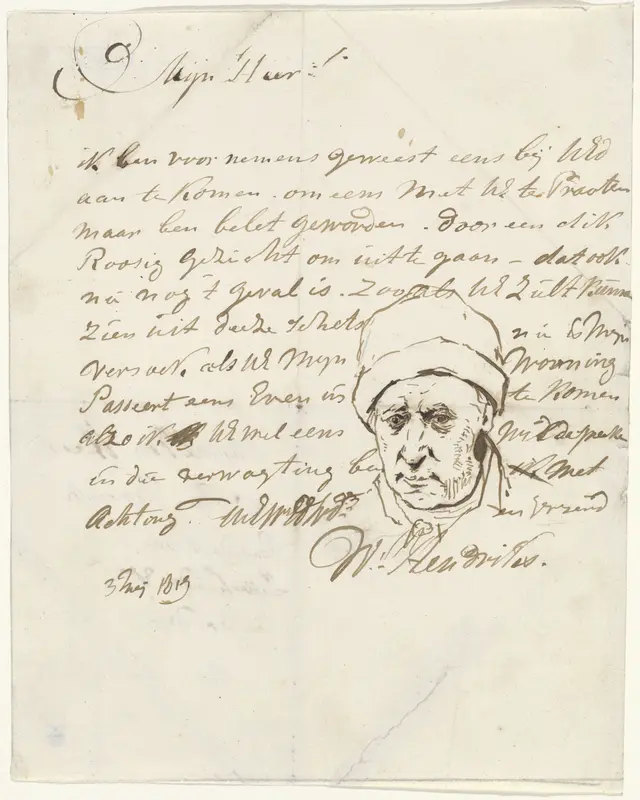 Mijn Heer
ik ben voor nemens geweest eens bij UEd
aan te komen. om eens met UE te Praaten
maar ben belet geworden. door een dik
Roosig gezicht om uit te gaan - dat ook
nu nog 't geval is. Zoo als UE zult kunnen
zien uit deeze schets nu is Mijn
versoek als UE Mijn Wooning
Passeert eens Even in te komen
alzo ik UE wel eens
in die verwagting ik met
Achting. en vriend
Ws. Hendriks.
3 Meij 1819